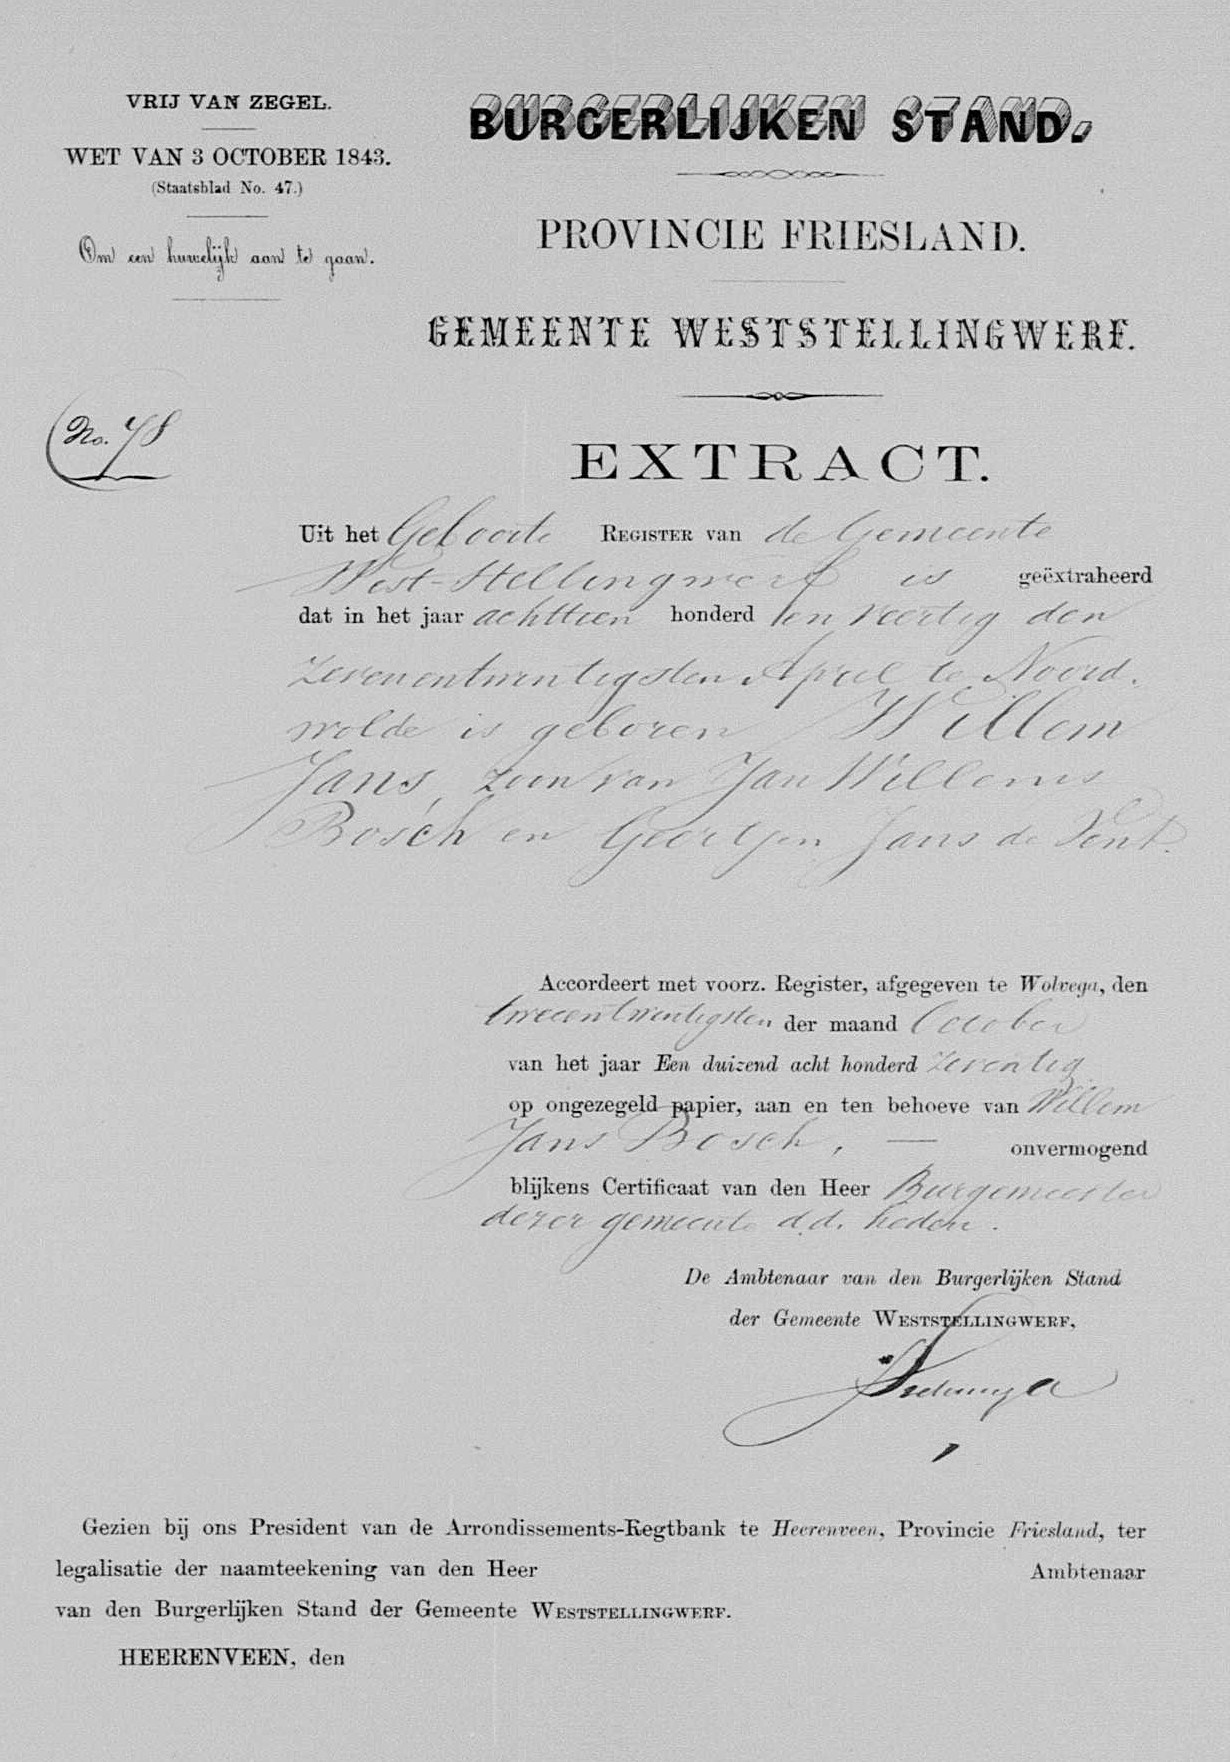 VRIJ VAN ZEGEL.
WET VAN 3 OCTOBER 1843.
(Staatsblad No. 47.)
Om een huwelijk aan te gaan.
No. 78
BURGERLIJKEN STAND.
PROVINCIE FRIESLAND.
GEMEENTE WESTSTELLINGWERF.
EXTRACT.
Uit het Geboorte REGISTER van de Gemeente
West-Stellingwerf is geëxtraheerd
dat in het jaar achttien honderd en veertig den
zevenentwintigsten April te Noord-
wolde is geboren Willem
Jans, zoon van Jan Willems
Bosch en Geertjen Jans de Vent.
Accordeert met voorz. Register, afgegeven te Wolvega, den
tweeentwintigsten der maand October
van het jaar Een duizend acht honderd zeventig
op ongezegeld papier, aan en ten behoeve van Willem
Jans Bosch, — onvermogend
blijkens Certificaat van den Heer Burgemeester
dezer gemeente d.d. heden.
De Ambtenaar van den Burgerlijken Stand
der Gemeente WESTSTELLINGWERF,
Gezien bij ons President van de Arrondissements-Regtbank te Heerenveen, Provincie Friesland, ter
legalisatie der naamteekening van den Heer Ambtenaar
van den Burgerlijken Stand der Gemeente WESTSTELLINGWERF.
HEERENVEEN, den